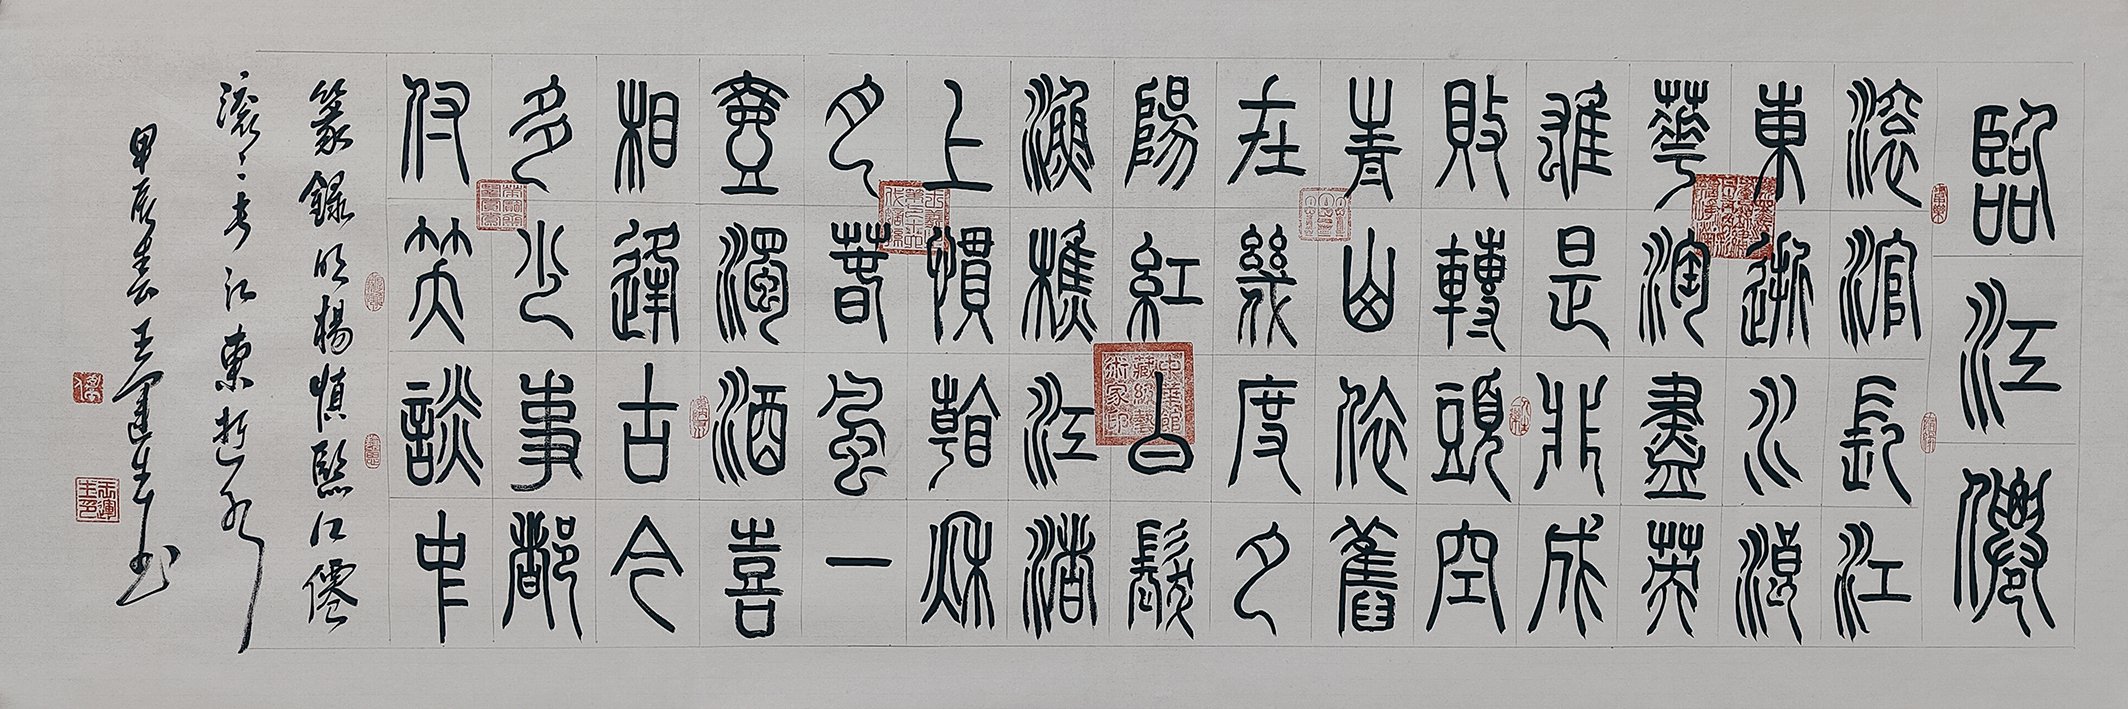 臨江僊
滚涫長江
東逝水浪
華淘盡英
雄是非成
敗轉頭空
青山依舊
在幾度夕
陽紅白髮
漁樵江渚
上慣看秋
月春風一
壺濁酒喜
相逢古今
多少事都
付笑談中
篆錄明楊慎臨江僊
滚〻長江東逝水
甲辰春王運生書
王運生印